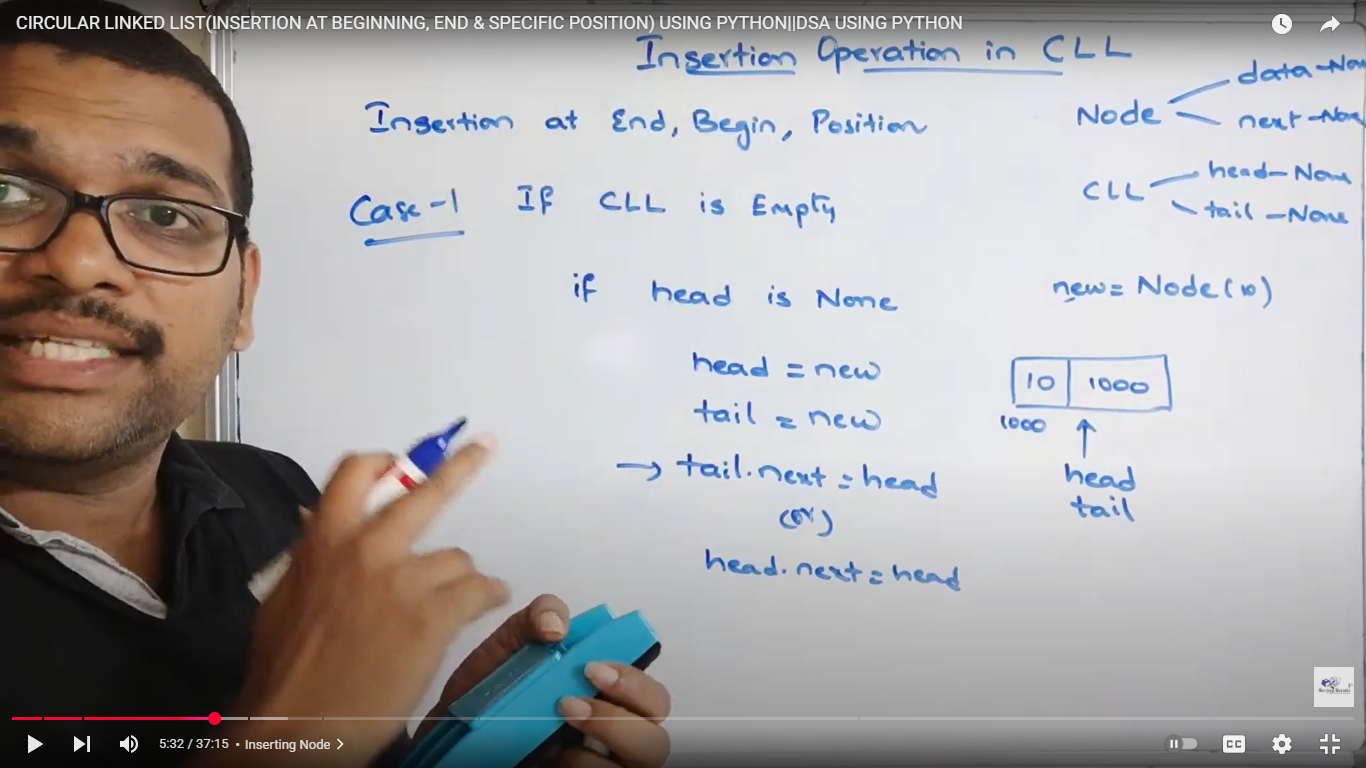 CIRCULAR LINKED LIST(INSERTION AT BEGINNING, END & SPECIFIC POSITION) USING PYTHON||DSA USING PYTHON
Insertion Operation in CLL
Insertion at End, Begin, Position
Node
data - Non
next - Non
CLL
head - None
tail - None
Case-1 If CLL is Empty
if head is None
head = new
tail = new
→ tail.next = head
(or)
head.next = head
new = Node(10)
10 1000
1000
head
tail
5:32 / 37:15 • Inserting Node
CC